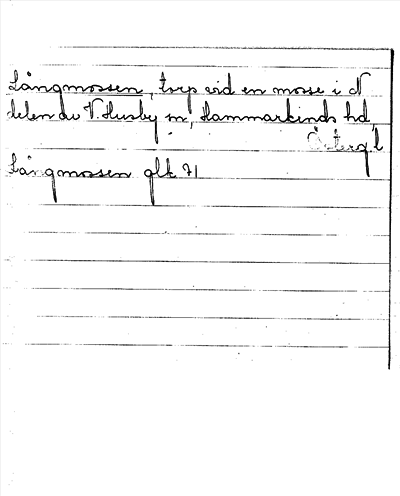 Långmossen, torp vid en mosse i N
delen av V. Husby sn, Hammarkinds hd,
Östergl
Långmossen glk 71